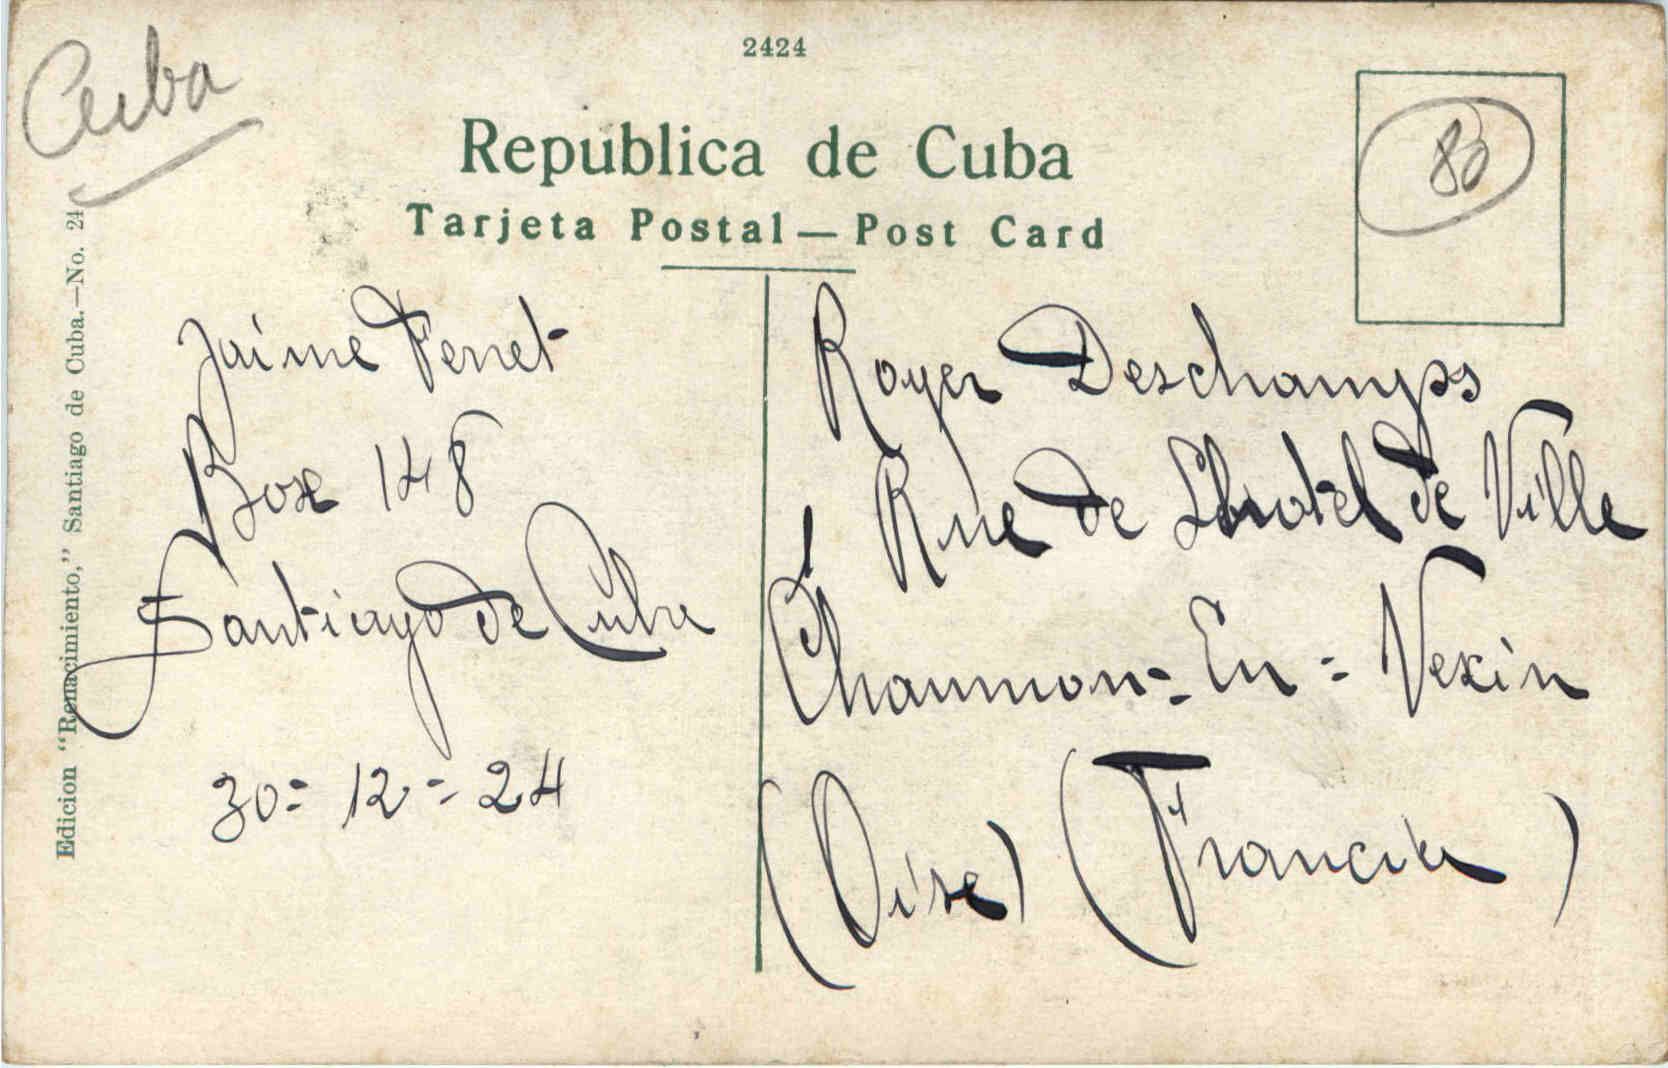 Cuba
2424
80
Republica de Cuba
Tarjeta Postal — Post Card
Edicion "Renacimiento," Santiago de Cuba.—No. 24
Jaime Penet
Box 148
Santiago de Cuba
30= 12= 24
Roger Deschamps
Rue de Lhotel de Ville
Chaumon= En= Vexin
(Oise) (Francia)